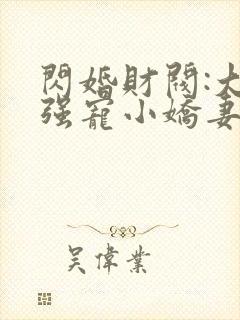 閃婚財閥:大
强寵小嬌妻
吴偉業